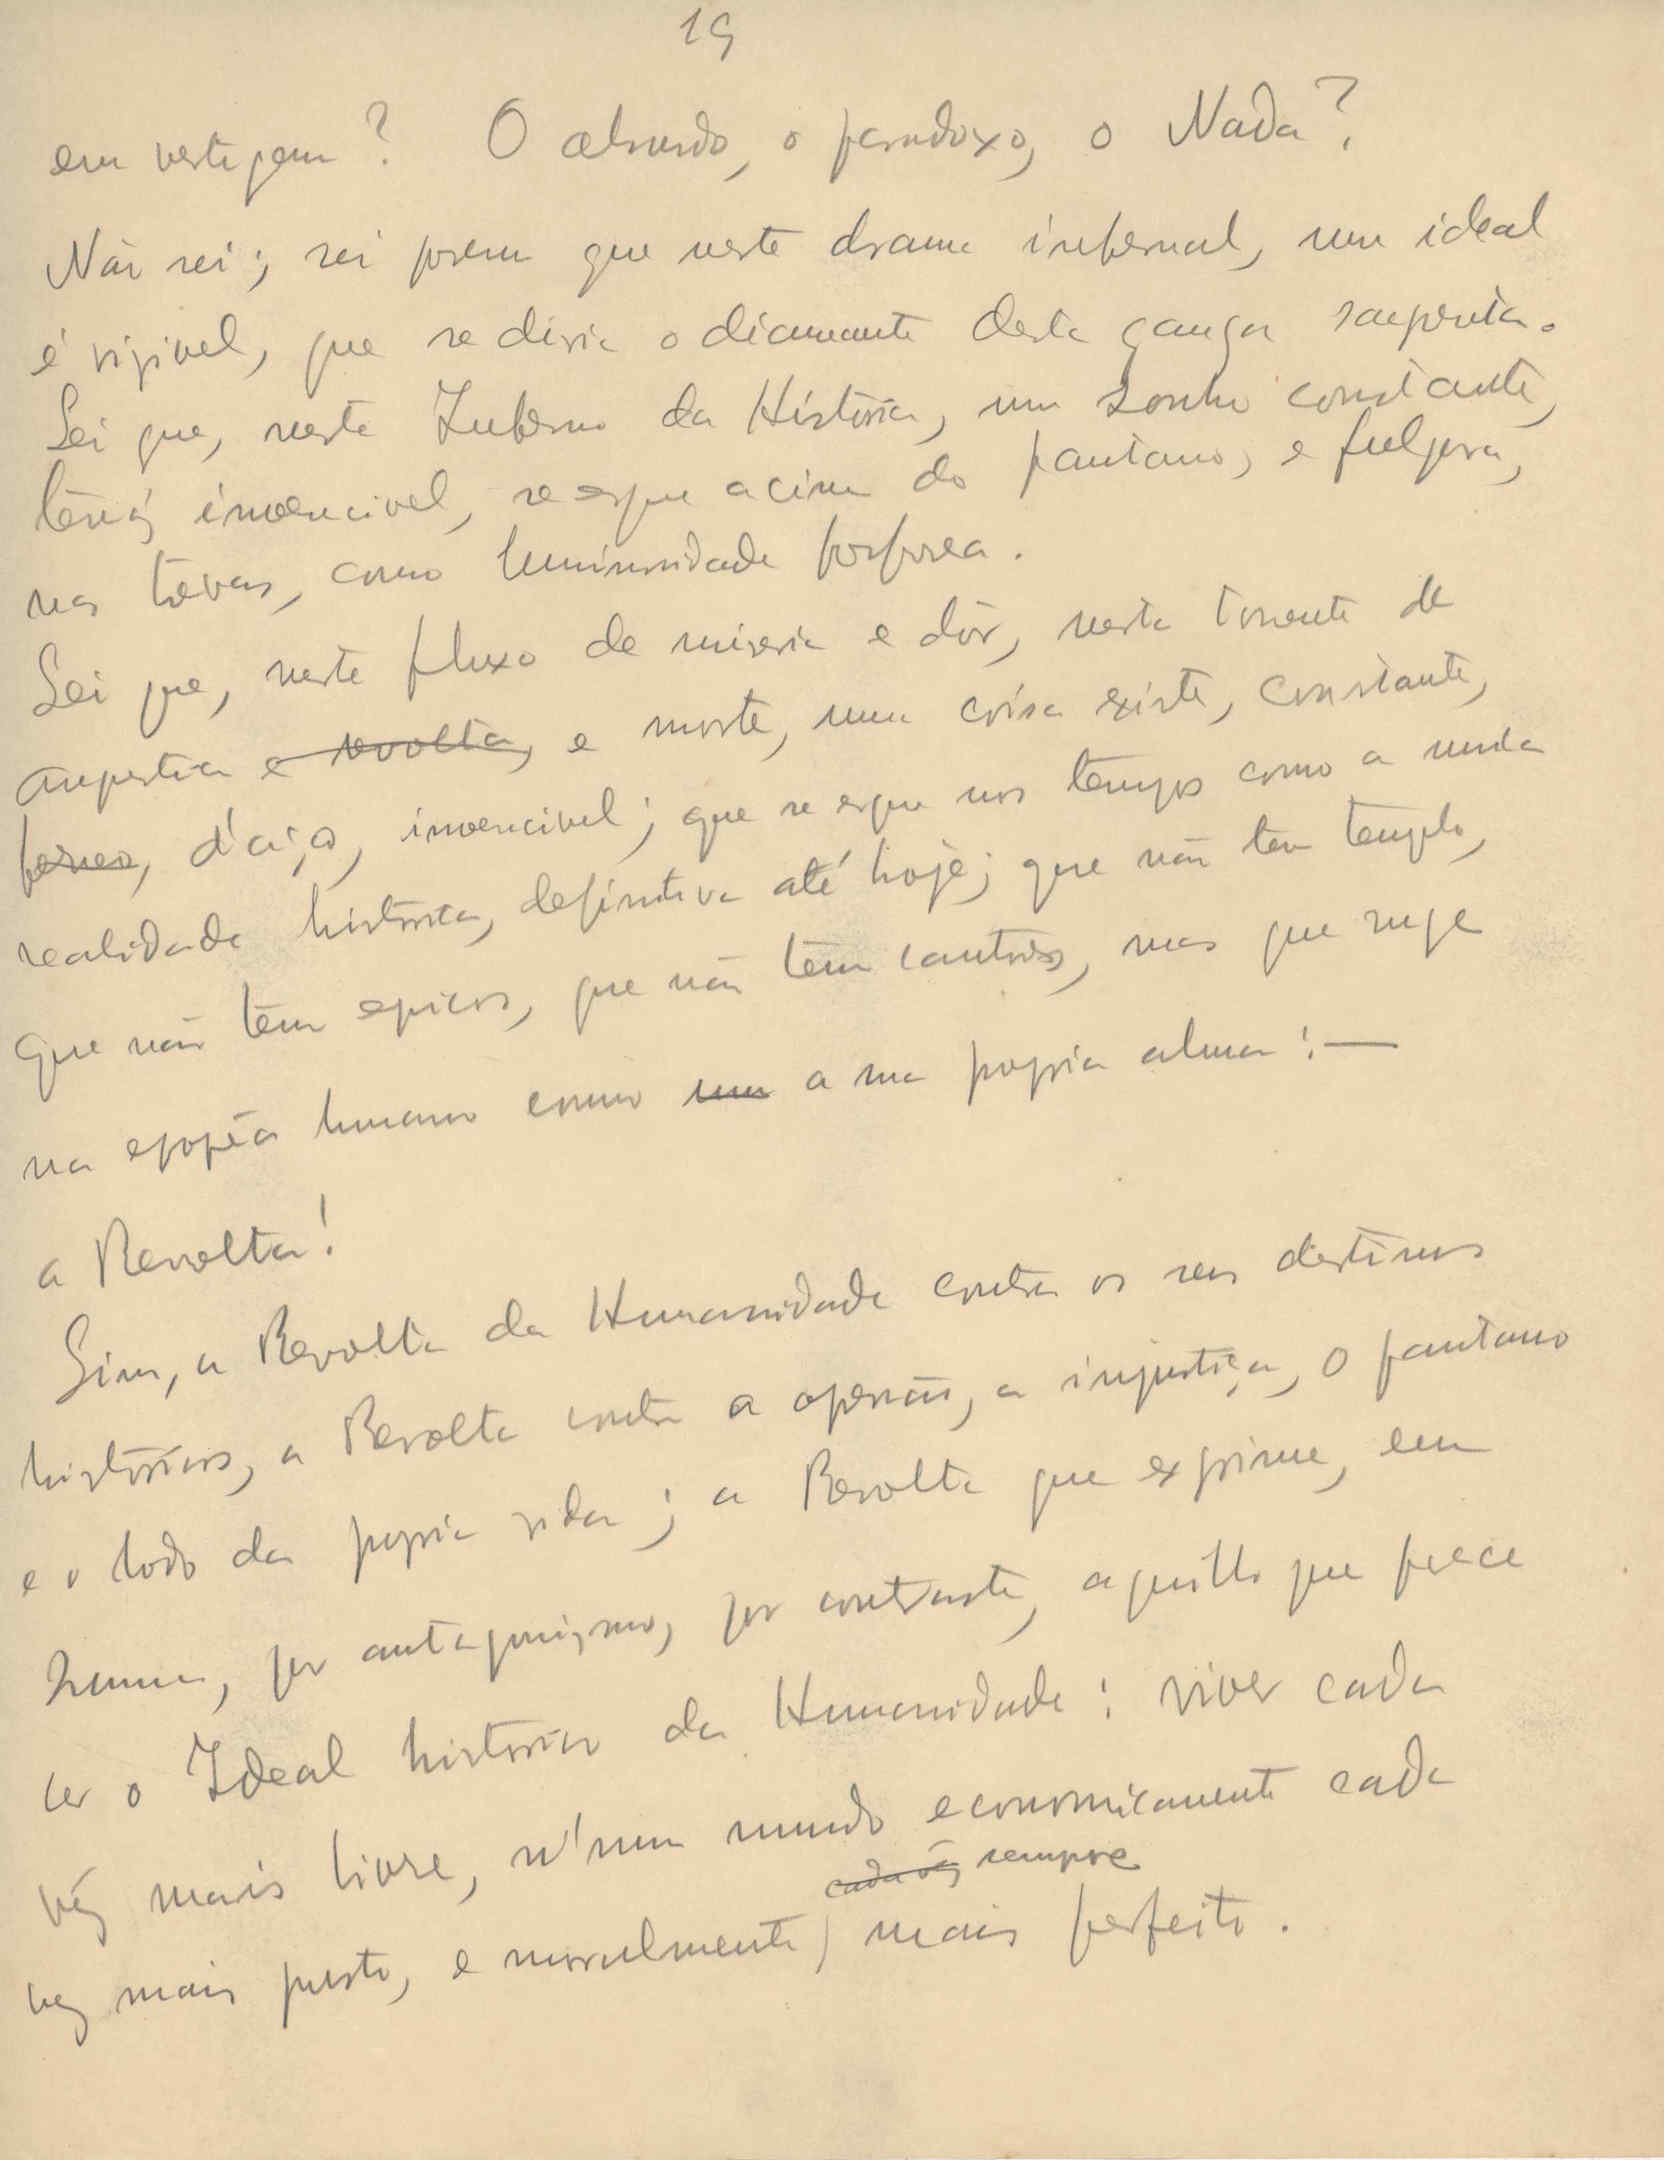 19
em vertigem? O absurdo, o paradoxo, o Nada?
Não sei; sei porem que neste drama infernal, um ideal
é visivel, que se diria o diamante desta ganga sangrenta.
Sei que, neste Inferno da História, um sonho constante,
tenáz invencivel, se ergue acima do pantano, e fulgura,
nas trevas, como luminosidade fosforea.
Sei que, neste fluxo de miseria e dôr, nesta torrente de
angustia e revolta, e morte, uma coisa existe, constante,
ferrea, d'aço, invencivel; que se ergue nos tempos como a unica
realidade historica, definitiva até hoje; que não tem templo,
que não têm epicos, que não têm cantores, mas que ruge
na epopêa humana como um a sua propria alma: —
a Revolta!
Sim, a Revolta da Humanidade contra os seus destinos
históricos, a Revolta contra a opressão, a injustiça, o pantano
e o lodo da propria vida; a Revolta que exprime, em
suma, por antagonismo, por contraste, aquillo que parece
ser o Ideal historico da Humanidade: viver cada
vêz mais livre, n'um mundo economicamente cada
cada vêz sempre
vez mais justo, e moralmente mais perfeito.